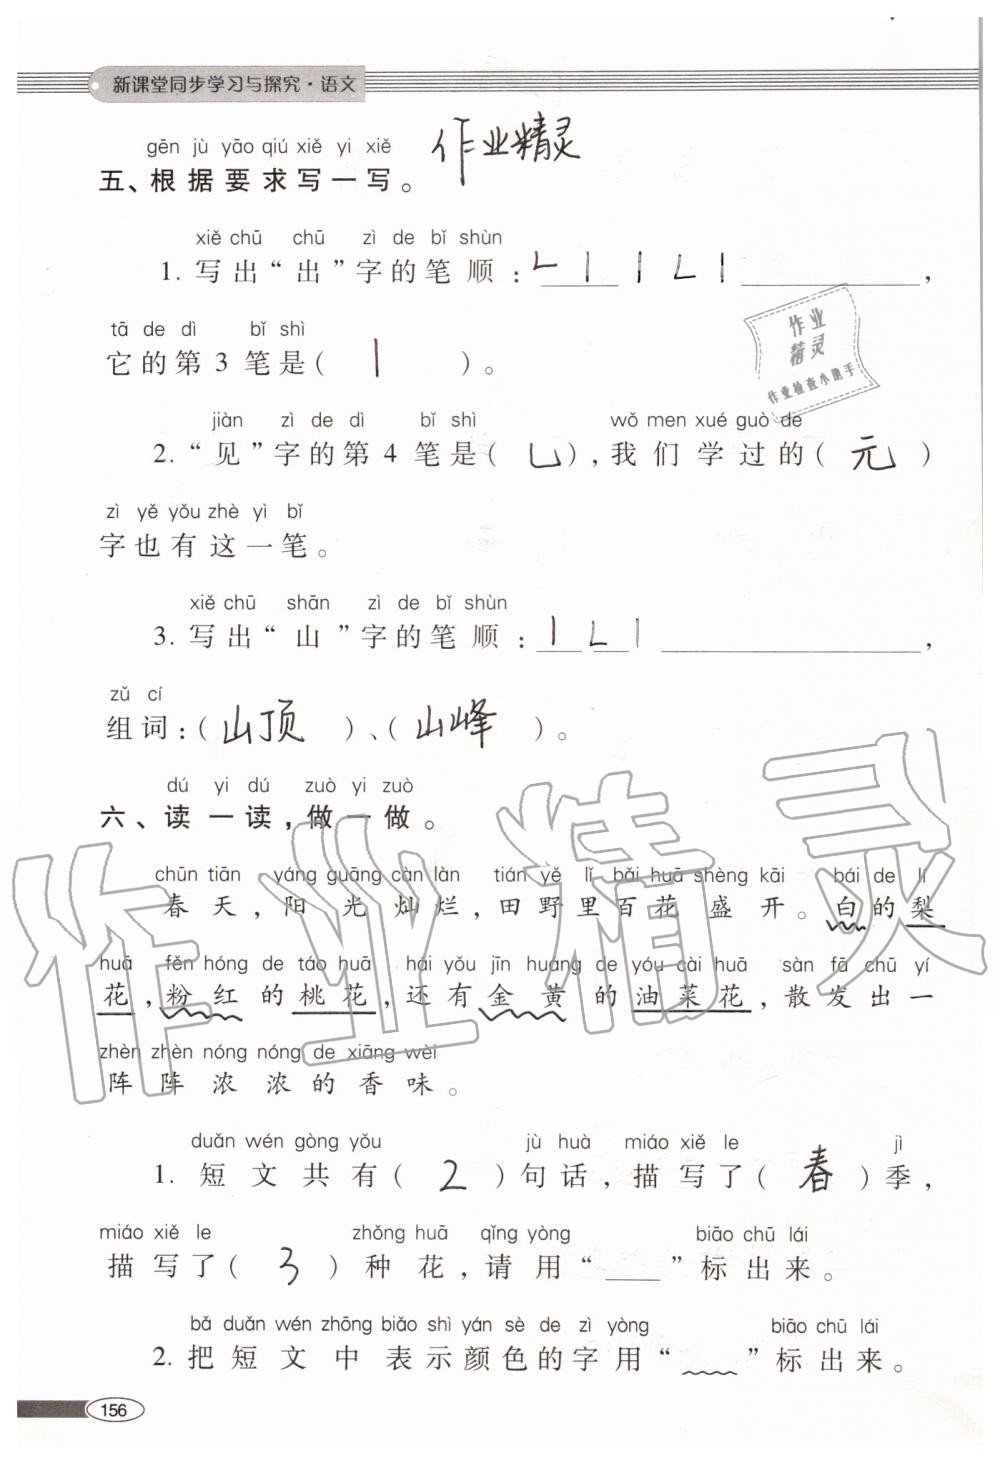 新课堂同步学习与探究·语文
gēn jù yāo qiú xiě yi xiě
作业精灵
五、根据要求写一写。
xiě chū chū zì de bǐ shùn
1. 写出“出”字的笔顺：㇗丨丨㇗丨，
tā de dì bǐ shì
它的第3笔是(丨)。
作业精灵
作业检查小助手
jiàn zì de dì bǐ shì wǒ men xué guò de
2. “见”字的第4笔是(乚)，我们学过的(元)
zì yě yǒu zhè yì bǐ
字也有这一笔。
xiě chū shān zì de bǐ shùn
3. 写出“山”字的笔顺：丨㇗丨，
zǔ cí
组词：(山顶)、(山峰)。
dú yi dú zuò yi zuò
六、读一读，做一做。
chūn tiān yáng guāng càn làn tián yě lǐ bǎi huā shèng kāi bái de lí
春天，阳光灿烂，田野里百花盛开。白的梨
huā fěn hóng de táo huā hái yǒu jīn huáng de yóu cài huā sàn fā chū yí
花，粉红的桃花，还有金黄的油菜花，散发出一
zhèn zhèn nóng nóng de xiāng wèi
阵阵浓浓的香味。
duǎn wén gòng yǒu jù huà miáo xiě le jì
1. 短文共有(2)句话，描写了(春)季，
miáo xiě le zhǒng huā qǐng yòng biāo chū lái
描写了(3)种花，请用“____”标出来。
bǎ duǎn wén zhōng biǎo shì yán sè de zì yòng biāo chū lái
2. 把短文中表示颜色的字用“﹏﹏”标出来。
156
作业精灵